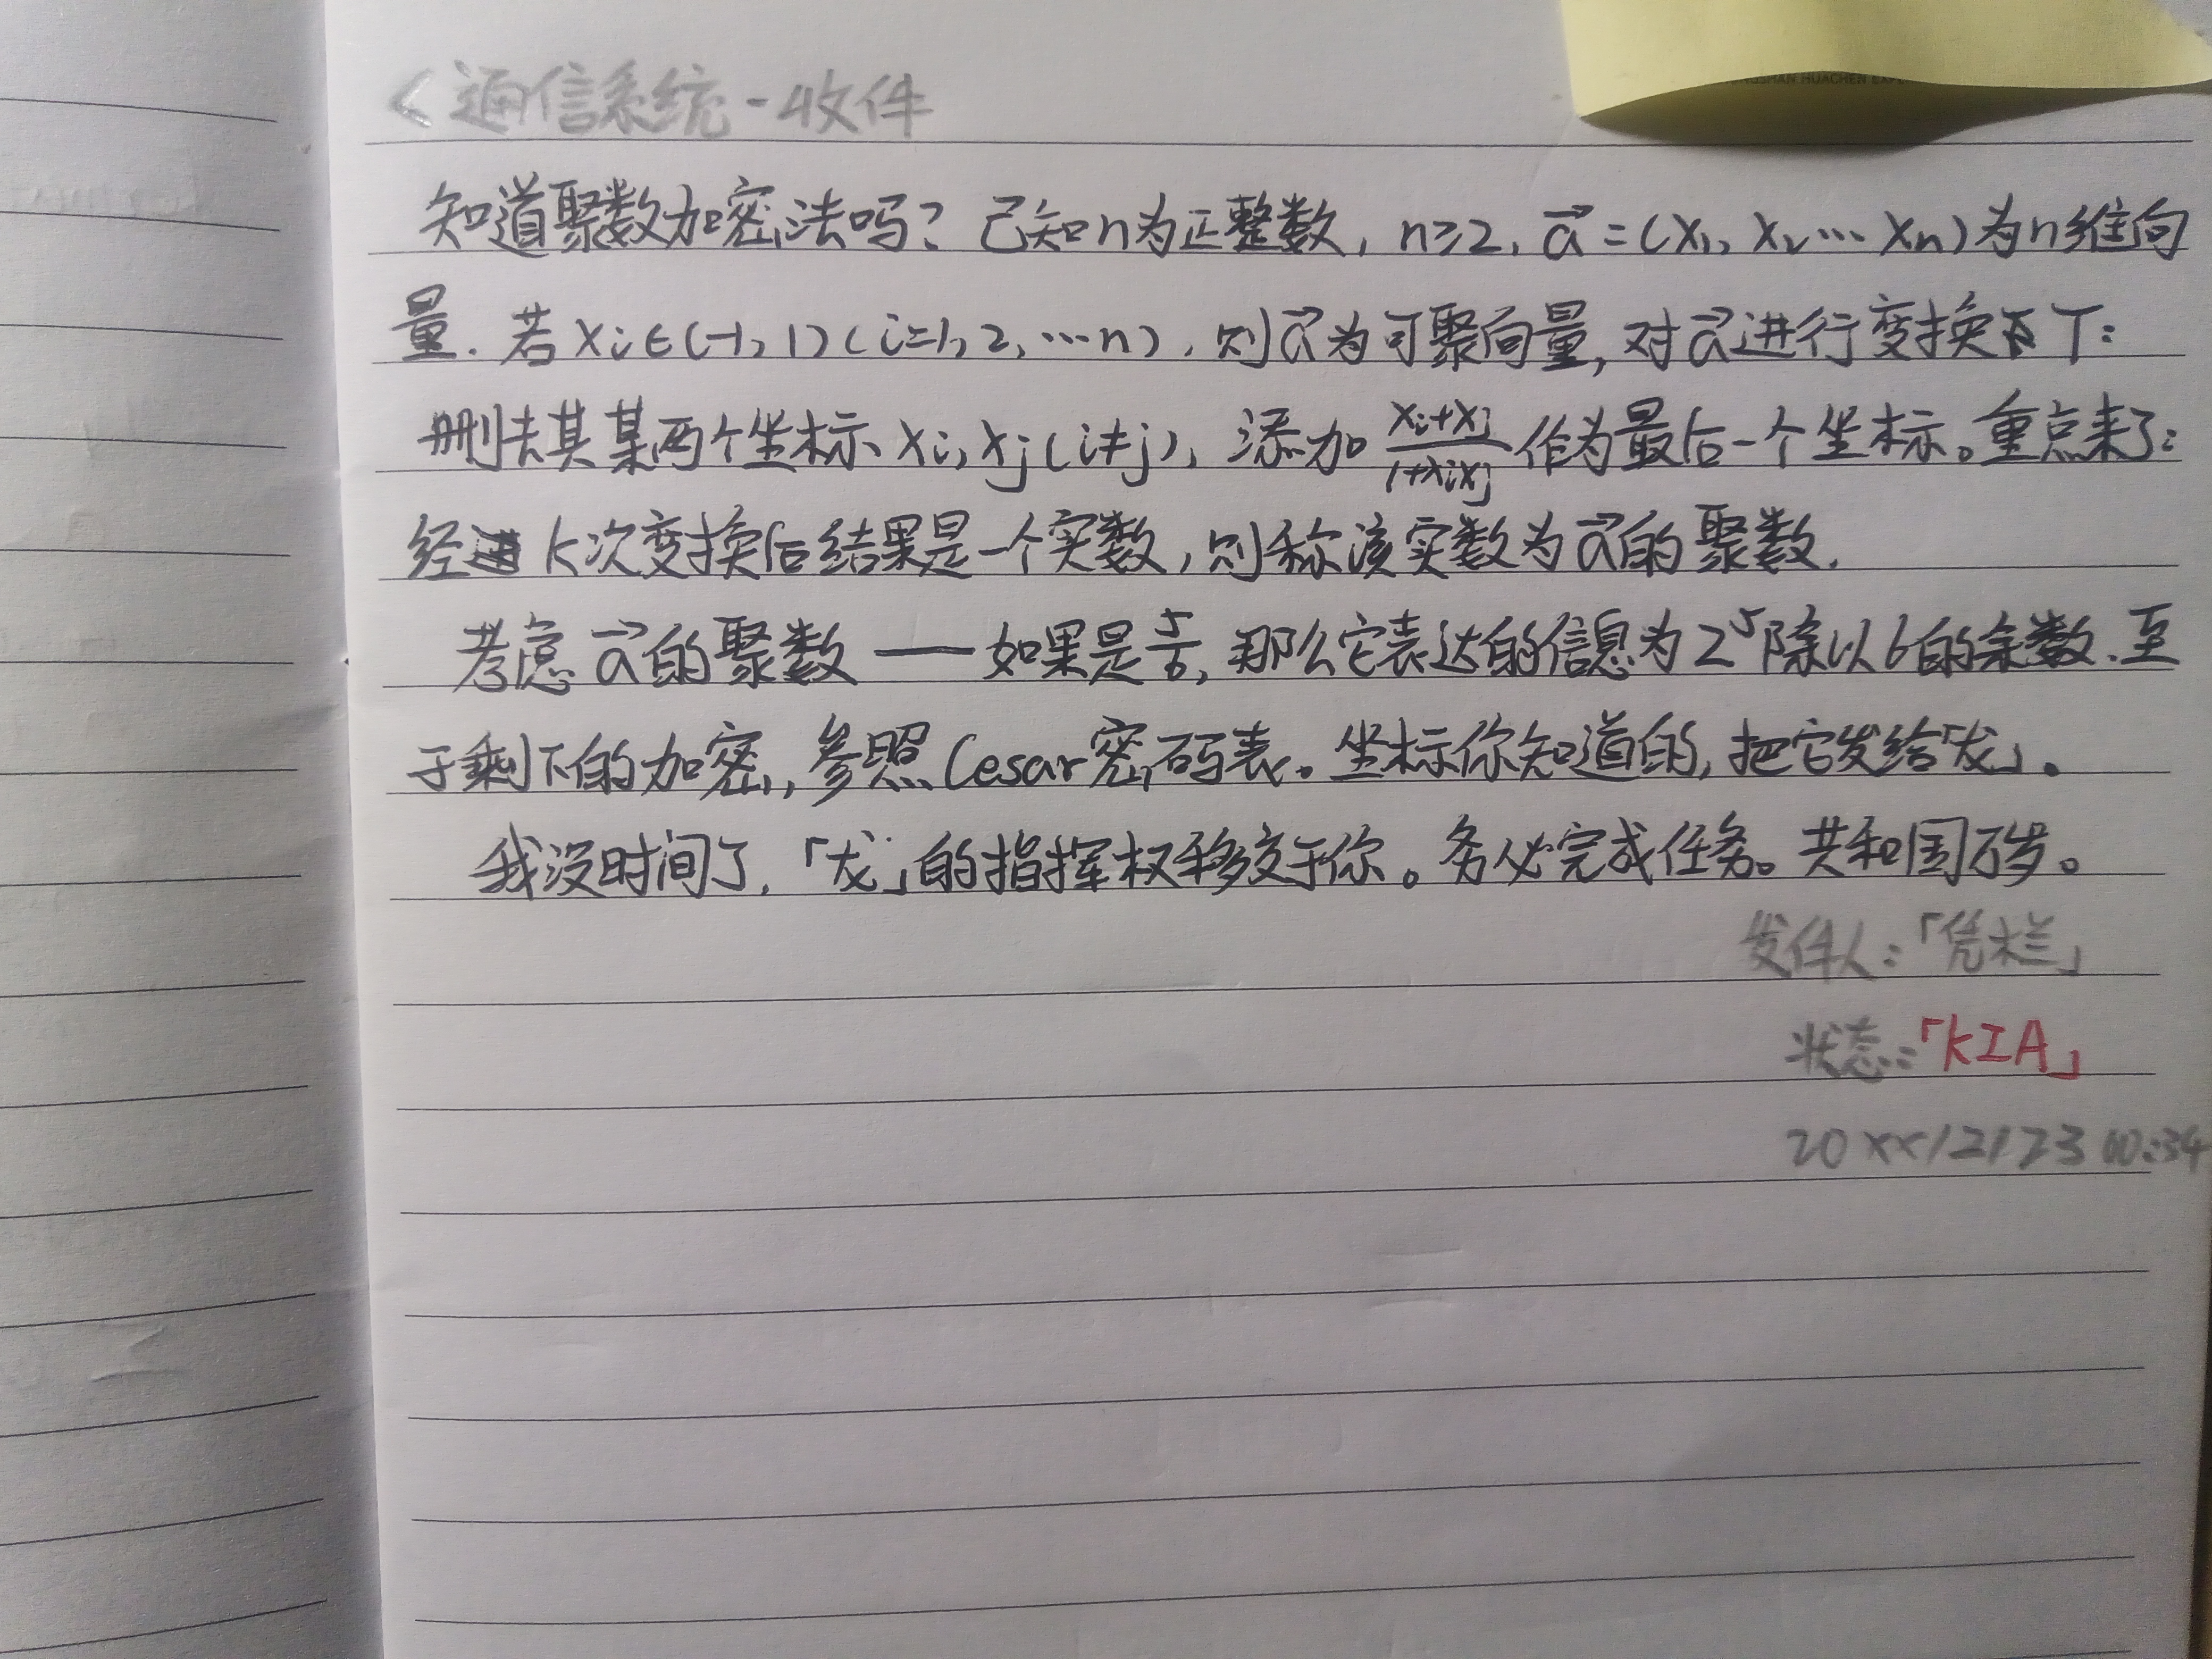 HUACHEN
<通信系统-收件
知道聚数加密法吗？已知n为正整数，n≥2，a⃗=(x₁，x₂…xₙ)为n维向
量．若xᵢ∈(-1，1)(i=1，2，…n)，则a⃗为可聚向量，对a⃗进行变换T：
删去其某两个坐标xᵢ，xⱼ(i≠j)，添加(xᵢ+xⱼ)/(1+xᵢxⱼ)作为最后一个坐标。重点来了：
经 k次变换后结果是一个实数，则称该实数为a⃗的聚数．
考虑a⃗的聚数——如果是5/6，那么它表达的信息为2⁵除以6的余数．至
于剩下的加密，参照Cesar密码表。坐标你知道的，把它发给「龙」。
我没时间了，「龙」的指挥权移交于你。务必完成任务。共和国万岁。
发件人：「凭栏」
状态：「KIA」
20xx/12/23 00:34